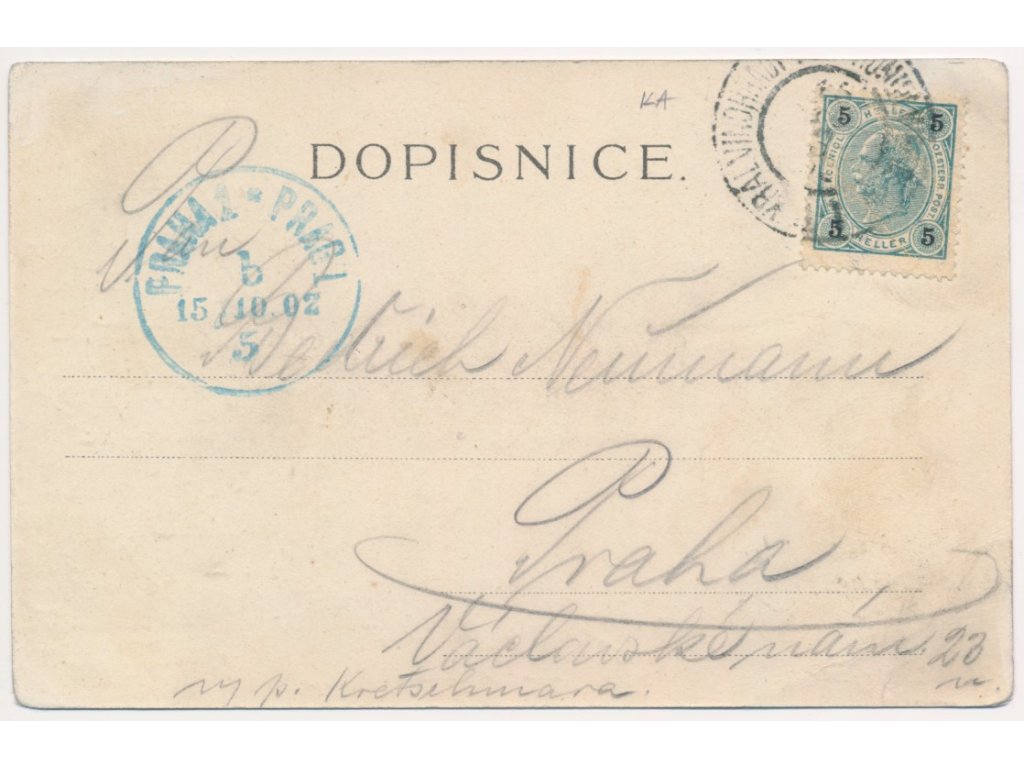 KA
DOPISNICE.
KRÁL. VINOHRADY
5 5
HELLER
5 5
PRAHA 1 * PRAG 1
b
15 10.02
5
P
Pan
Bedřich Neumann
Praha
Václavské nám. 23
n.
u p. Kretschmara.